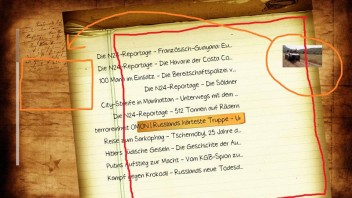 Die N24-Reportage - Französisch-Guayana: Eu...
Die N24-Reportage - Die Havarie der Costa Co...
100 Mann im Einsatz - Die Bereitschaftspolizei v...
Die N24-Reportage - Die Söldner
City-Streife in Manhattan - Unterwegs mit dem ...
Die N24-Reportage - 512 Tonnen auf Rädern
OMON | Russlands härteste Truppe -
Reise zum Sarkophag - Tschernobyl, 25 Jahre d...
Hitlers jüdische Geiseln - Die Geschichte der Au...
Putins Aufstieg zur Macht - Vom KGB-Spion zu...
Kampf gegen Krokodil - Russlands neue Todesd...